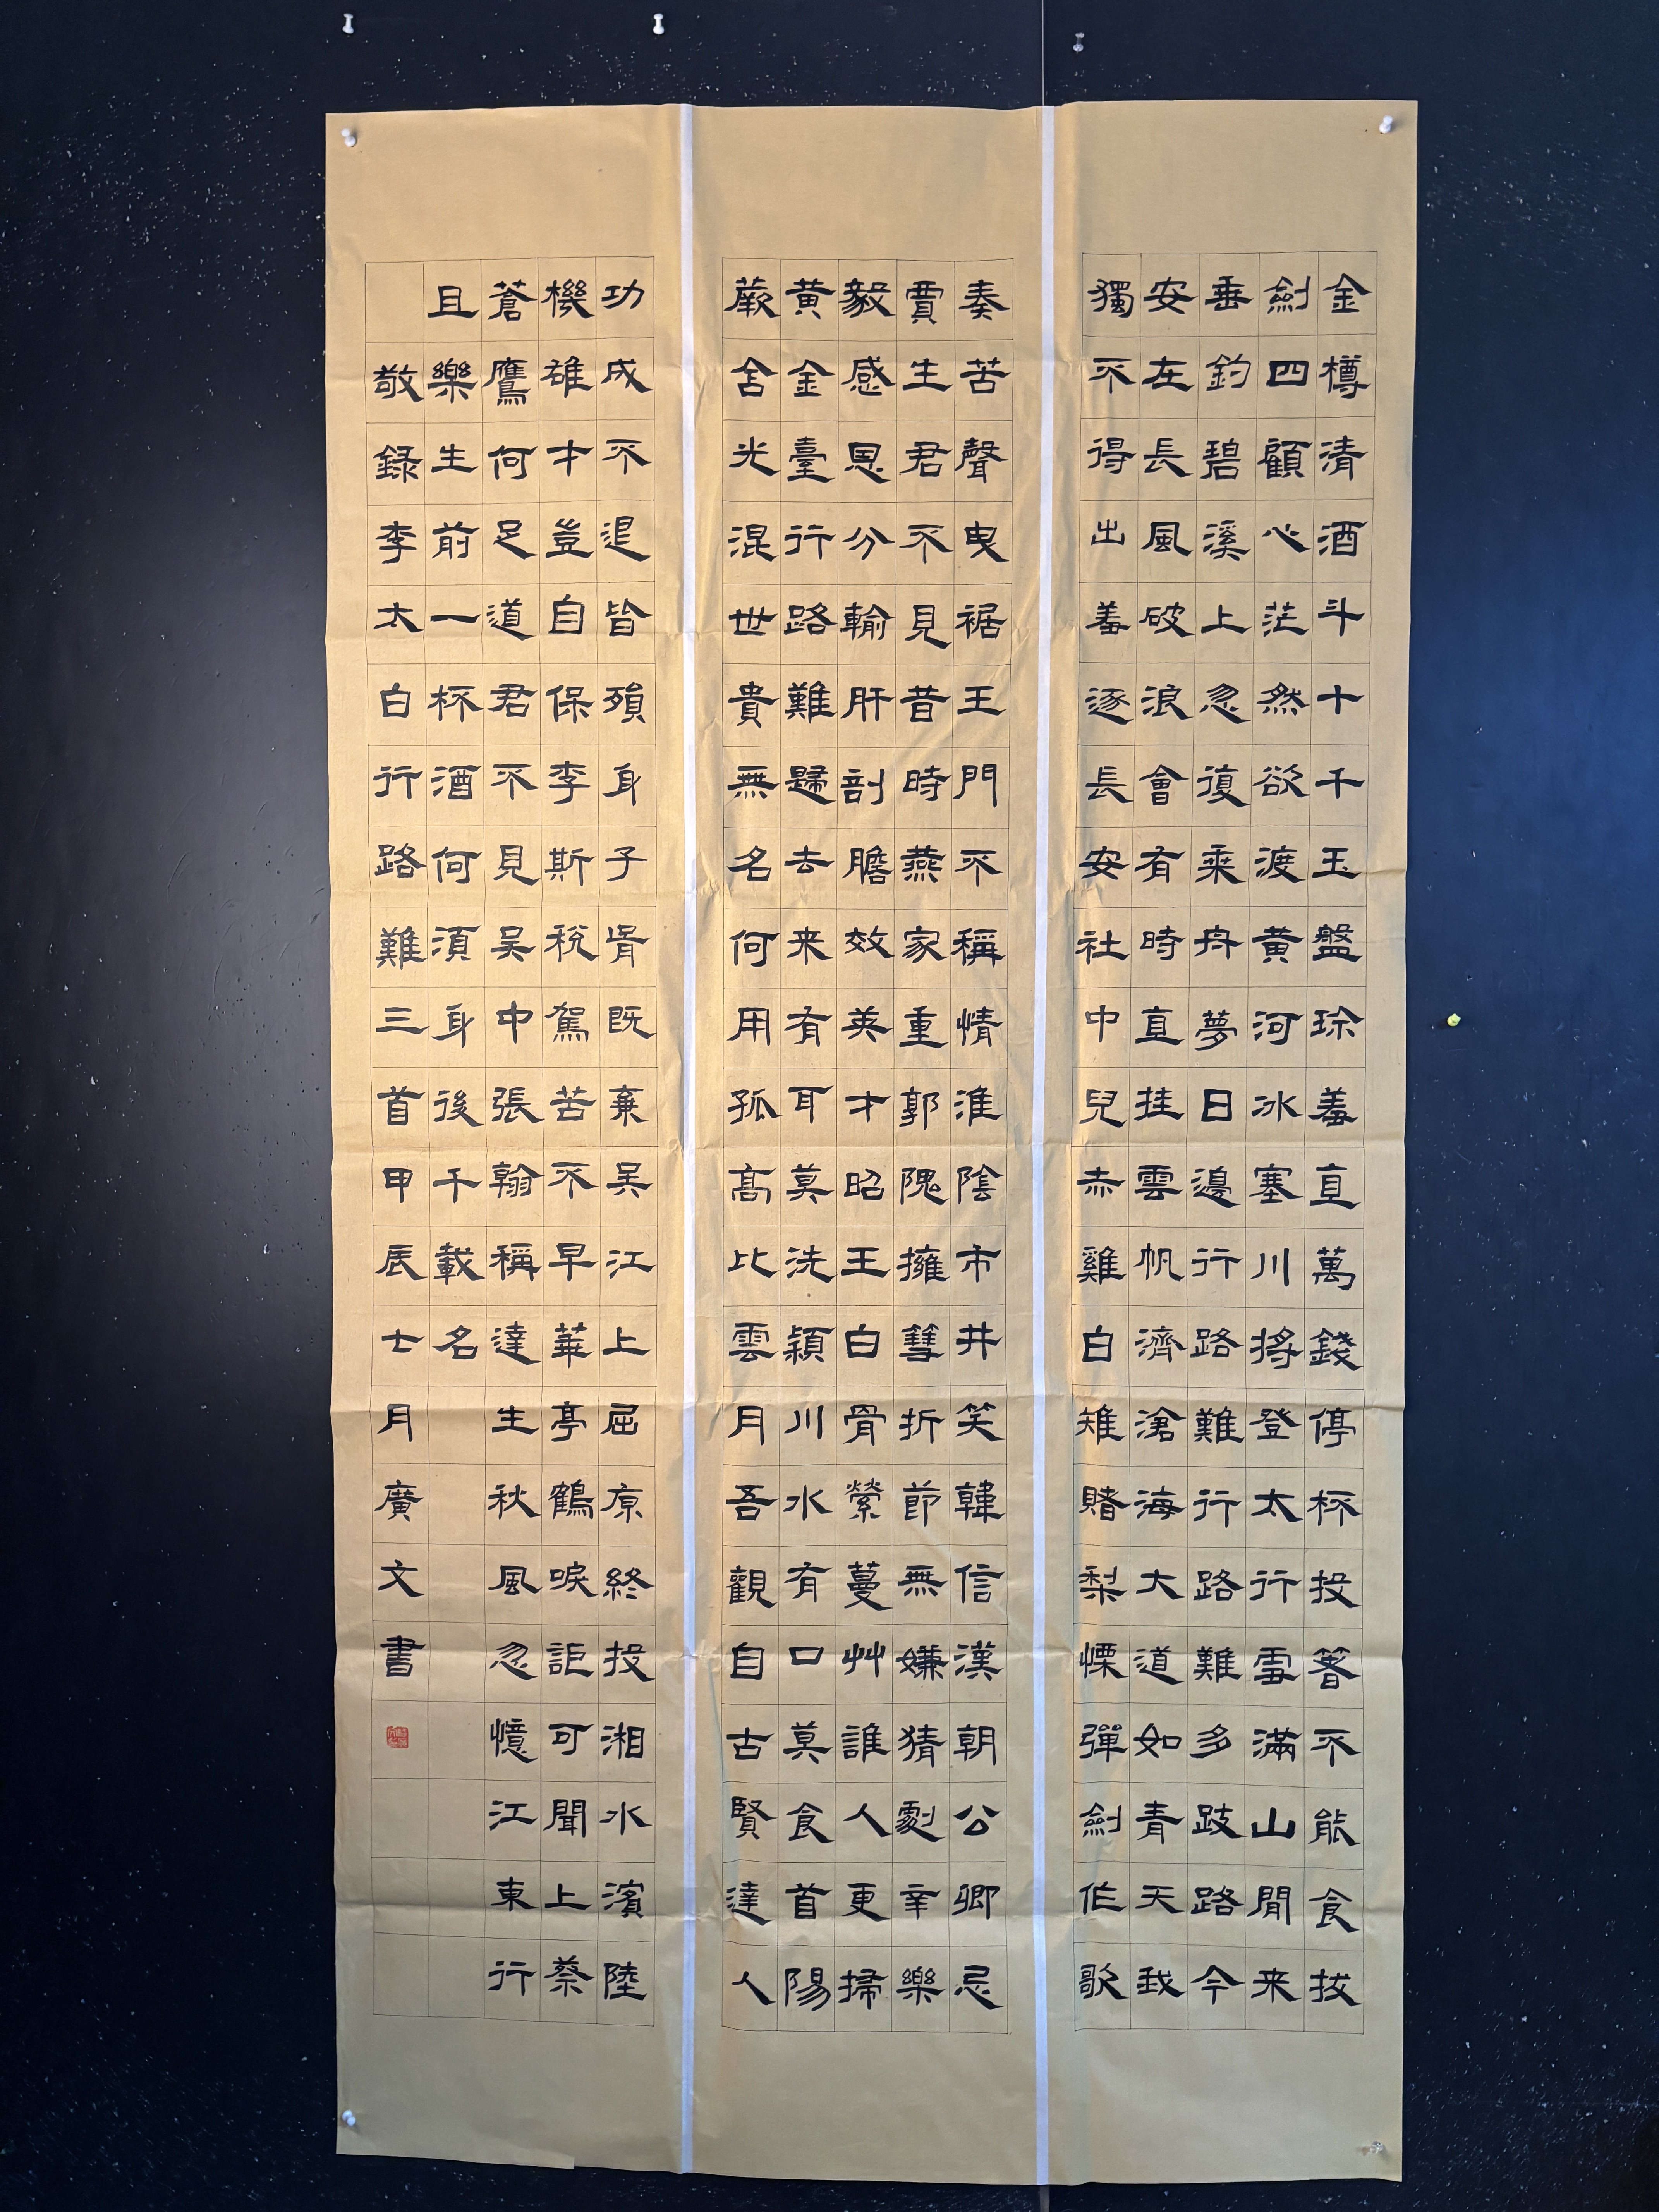 金樽清酒斗十千玉盤珎羞直萬錢停杯投箸不能食拔
劍四顧心茫然欲渡黄河冰塞川將登太行雪滿山閒来
垂釣碧溪上忽復乘舟夢日邊行路難行路難多跂路今
安在長風破浪會有時直挂雲帆濟滄海大道如青天我
獨不得出羞逐長安社中兒赤雞白雉賭梨慄彈劍作歌
奏苦聲曳裾王門不稱情淮陰市井笑韓信漢朝公卿忌
賈生君不見昔時燕家重郭隗擁篲折節無嫌猜劇辛樂
毅感恩分輸肝剖膽效英才昭王白骨縈蔓艸誰人更掃
黄金臺行路難歸去来有耳莫洗潁川水有口莫食首陽
蕨含光混世貴無名何用孤高比雲月吾觀自古賢達人
功成不退皆殞身子胥既棄吳江上屈原終投湘水濱陸
機雄才豈自保李斯稅駕苦不早華亭鶴唳詎可聞上蔡
蒼鷹何足道君不見吳中張翰稱達生秋風忽憶江東行
且樂生前一杯酒何須身後千載名
敬錄李太白行路難三首甲辰士月廣文書